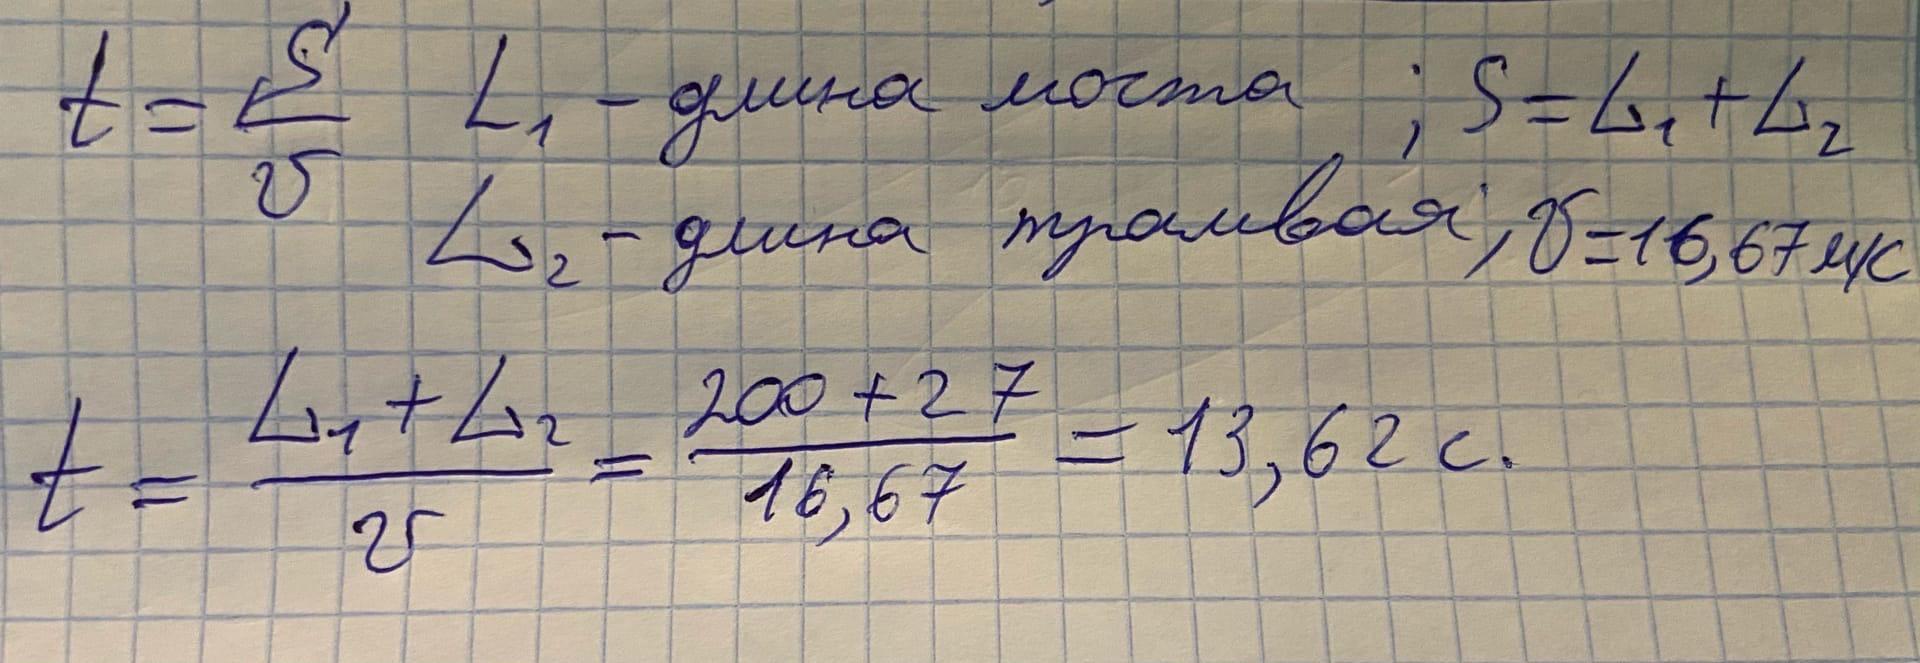 t = S/v L₁ - длина моста ; S = L₁ + L₂
L₂ - длина трамвая ; v = 16,67 м/с
t = (L₁ + L₂)/v = (200 + 27)/16,67 = 13,62 с.